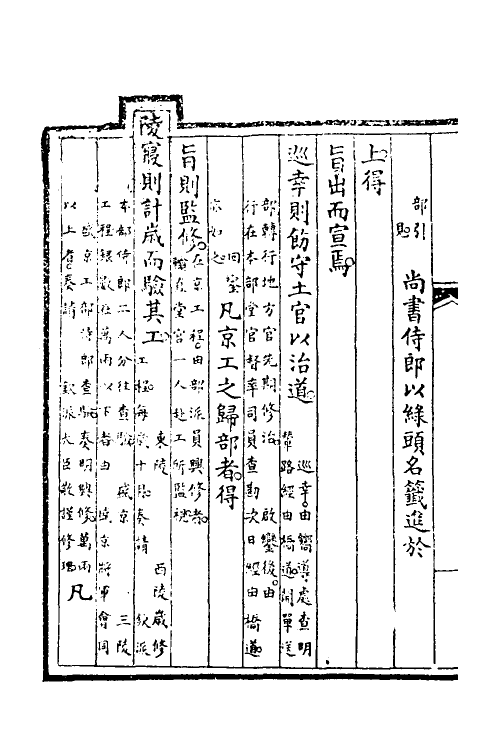 部引
題 尚書侍郎以綠頭名籤進於
上得
旨出而宣焉
巡幸則飭守土官以治道 巡幸由嚮導處查明
輦路經由橋道開單送
部轉行地方官先期修治 啟鑾後由
行在本部堂官督率司員查勘次日經由橋道
回鑾
亦如之 凡京工之歸部者得
旨則監修 在京工程由部派員興修者
堂官一人赴工所監視
陵寢則計歲而驗其工 東陵 西陵歲修
工程每歲十月奏請 欽派
本部侍郎二人分往查驗 盛京 三陵
工程銀數在萬兩以下者由 盛京將軍會同
盛京工部侍郎查驗奏明興修萬兩
以上者奏請 欽派大臣敬謹修理 凡